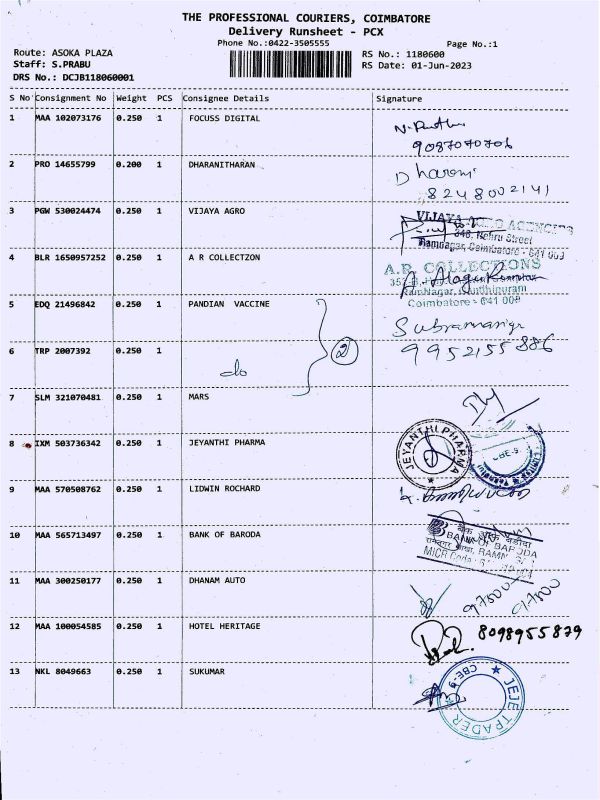 THE PROFESSIONAL COURIERS, COIMBATORE
Delivery Runsheet - PCX
Phone No.:0422-3505555
Page No.:1
Route: ASOKA PLAZA
RS No.: 1180600
Staff: S.PRABU
RS Date: 01-Jun-2023
DRS No.: DCJB118060001
S No Consignment No Weight PCS Consignee Details Signature
1 MAA 102073176 0.250 1 FOCUSS DIGITAL
9087070706
2 PRO 14655799 0.200 1 DHARANITHARAN Dharani
8248002141
3 PGW 530024474 0.250 1 VIJAYA AGRO
VIJAYA AGRO AGENCIES
348, Nehru Street
Ramnagar, Coimbatore - 641 009
4 BLR 1650957252 0.250 1 A R COLLECTZON
A.R. COLLECTIONS
RamNagar, Gandhipuram
Coimbatore - 641 009
5 EDQ 21496842 0.250 1 PANDIAN VACCINE
Subramaniya
9952155886
6 TRP 2007392 0.250 1 do 2
7 SLM 321070481 0.250 1 MARS
8 IXM 503736342 0.250 1 JEYANTHI PHARMA
JEYANTHI PHARMA
CBE-9
9 MAA 570508762 0.250 1 LIDWIN ROCHARD
10 MAA 565713497 0.250 1 BANK OF BARODA
बैंक ऑफ़ बड़ौदा
BANK OF BARODA
MICR Code
11 MAA 300250177 0.250 1 DHANAM AUTO
97500 97500
12 MAA 100054585 0.250 1 HOTEL HERITAGE
8098955879
13 NKL 8049663 0.250 1 SUKUMAR
JEJE TRADER
CBE-9